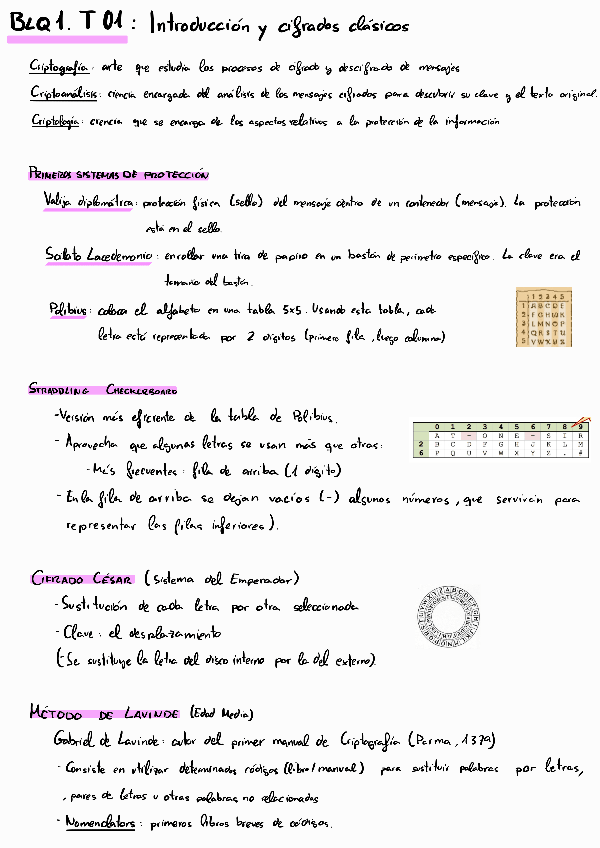 BLQ1. T01: Introducción y cifrados clásicos
Criptografía: arte que estudia los procesos de cifrado y descifrado de mensajes
Criptoanálisis: ciencia encargada del análisis de los mensajes cifrados para descubrir su clave y el texto original.
Criptología: ciencia que se encarga de los aspectos relativos a la protección de la información
PRIMEROS SISTEMAS DE PROTECCIÓN
Valija diplomática: protección física (sello) del mensaje dentro de un contenedor (mensaje). La protección
está en el sello.
Scitalo Lacedemonio: enrollar una tira de papiro en un bastón de perímetro específico. La clave era el
tamaño del bastón.
Polibius: coloca el alfabeto en una tabla 5x5. Usando esta tabla, cada
letra está representada por 2 dígitos (primero fila, luego columna)
1 2 3 4 5
1 A B C D E
2 F G H I/J K
3 L M N O P
4 Q R S T U
5 V W X Y Z
STRADDLING CHECKERBOARD
- Versión más eficiente de la tabla de Polibius.
- Aprovecha que algunas letras se usan más que otras:
- Más frecuentes: fila de arriba (1 dígito)
- En la fila de arriba se dejan vacíos (-) algunos números, que servirán para
representar las filas inferiores).
0 1 2 3 4 5 6 7 8 9
A T - O N E - S I R
2 B C D F G H J K L M
6 P Q U V W X Y Z . #
CIFRADO CÉSAR (Sistema del Emperador)
- Sustitución de cada letra por otra seleccionada
- Clave: el desplazamiento
(- Se sustituye la letra del disco interno por la del externo).
MÉTODO DE LAVINDE (Edad Media)
Gabriel de Lavinde: autor del primer manual de Criptografía (Parma, 1379)
- Consiste en utilizar determinados códigos (libro/manual) para sustituir palabras por letras,
, pares de letras u otras palabras no relacionadas
- Nomenclators: primeros libros breves de códigos.